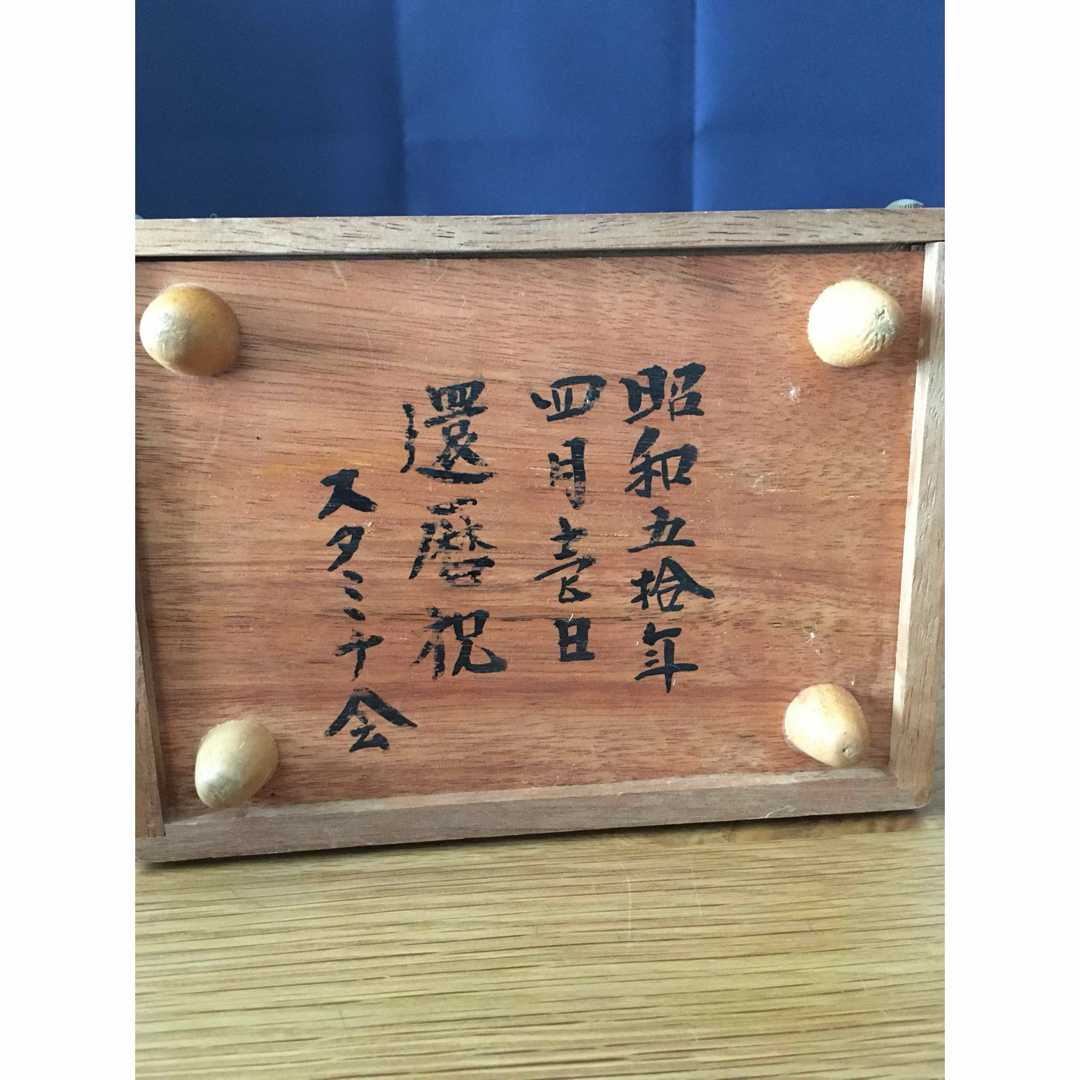 昭和五拾年
四月壱日
還暦祝
スタミナ会